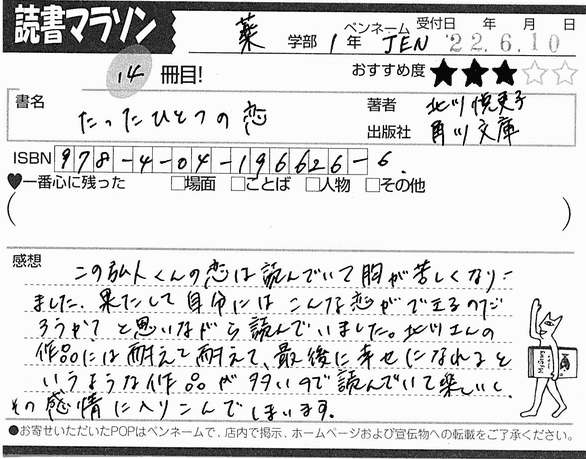 読書マラソン
薬 学部 1年 ペンネーム JEN 受付日 '22.6.10 年 月 日
14 冊目! おすすめ度 ★★★☆☆
書名 たったひとつの恋
著者 北川悦吏子
出版社 角川文庫
ISBN 978-4-04-196626-6
♥一番心に残った □場面 □ことば □人物 □その他
感想
この弘人くんの恋は読んでいて胸が苦しくなり
ました。果たして自分にはこんな恋ができるのだ
ろうか?と思いながら読んでいました。北川さんの
作品には耐えて耐えて、最後に幸せになれると
いうような作品が多いので読んでいて楽しいし、
その感情に入りこんでしまいます。
●お寄せいただいたPOPはペンネームで、店内で掲示、ホームページおよび宣伝物への転載をご了承ください。